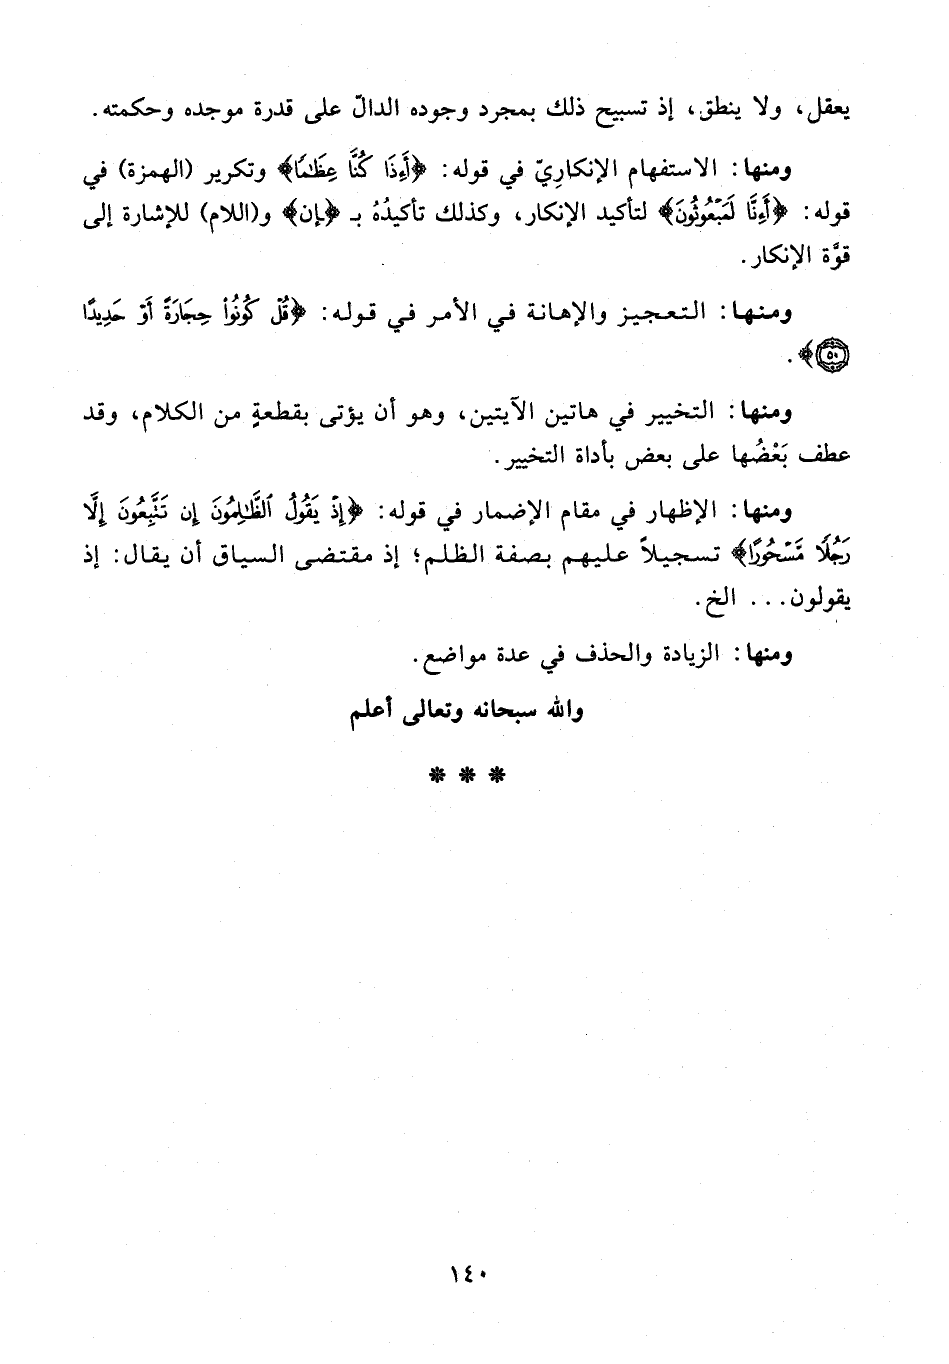 يعقل، ولا ينطق، إذ تسبيح ذلك بمجرد وجوده الدالّ على قدرة موجده وحكمته.
ومنها: الاستفهام الإنكارِيّ في قوله: ﴿أَءِذَا كُنَّا عِظَٰمًا﴾ وتكرير (الهمزة) في
قوله: ﴿أَءِنَّا لَمَبْعُوثُونَ﴾ لتأكيد الإنكار، وكذلك تأكيدُهُ بـ ﴿إن﴾ و(اللام) للإشارة إلى
قوَّة الإنكار.
ومنها: التعجيز والإهانة في الأمر في قوله: ﴿قُلْ كُونُوا۟ حِجَارَةً أَوْ حَدِيدًا
٥٠﴾.
ومنها: التخيير في هاتين الآيتين، وهو أن يؤتى بقطعةٍ من الكلام، وقد
عطف بَعْضُها على بعض بأداة التخيير.
ومنها: الإظهار في مقام الإضمار في قوله: ﴿إِذْ يَقُولُ ٱلظَّٰلِمُونَ إِن تَتَّبِعُونَ إِلَّا
رَجُلًا مَّسْحُورًا﴾ تسجيلاً عليهم بصفة الظلم؛ إذ مقتضى السياق أن يقال: إذ
يقولون... الخ.
ومنها: الزيادة والحذف في عدة مواضع.
والله سبحانه وتعالى أعلم
* * *
١٤٠